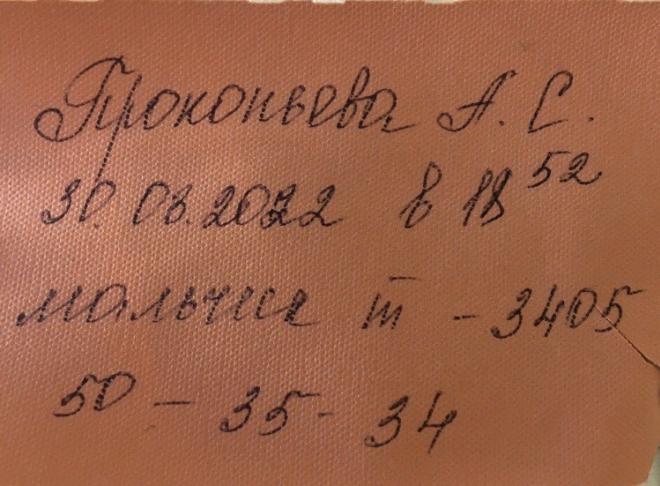 Прокопьева А. С.
30.08.2022 в 18 52
мальчик т̅ - 3405
50 - 35 - 34